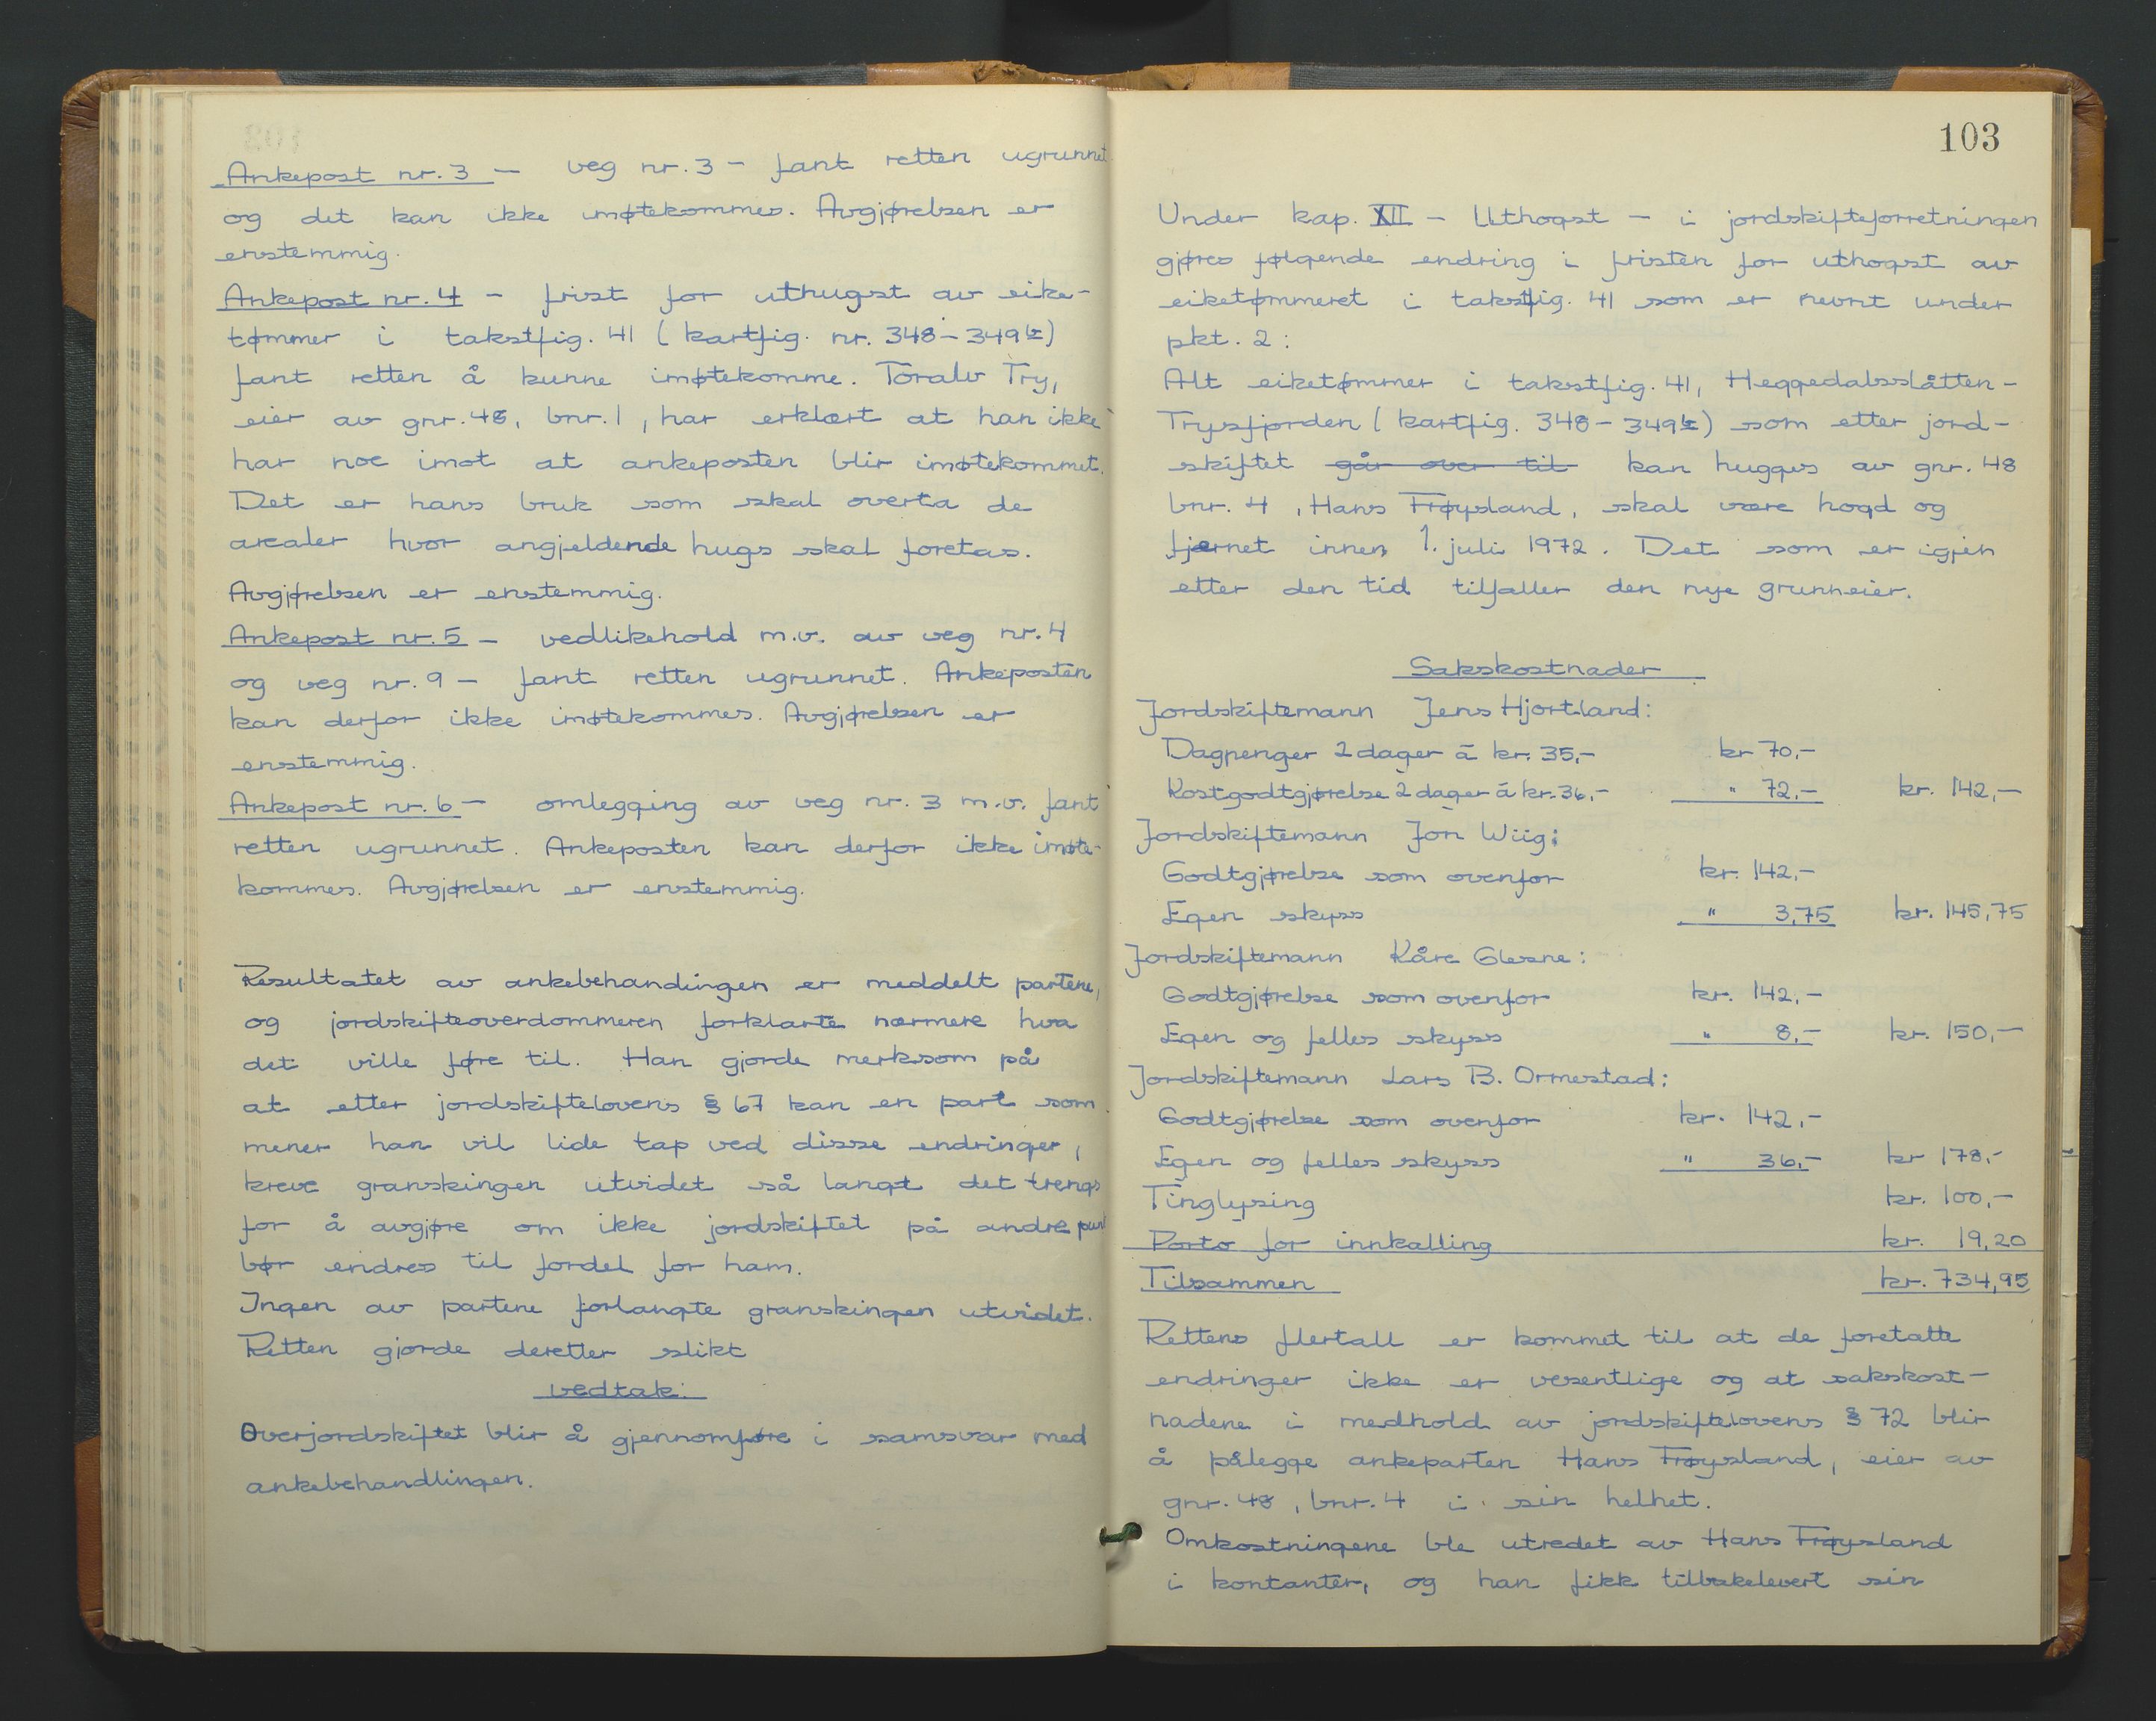 Ankepost nr. 3 - veg nr. 3 - fant retten ugrunnet
og det kan ikke imøtekommes. Avgjørelsen er
enstemmig.
Ankepost nr. 4 - frist for uthugst av eike-
tømmer i takstfig. 41 (kartfig. nr. 348-349b)
fant retten å kunne imøtekomme. Toralv Try,
eier av gnr. 48, bnr. 1, har erklært at han ikke
har noe imot at ankeposten blir imøtekommet.
Det er hans bruk som skal overta de
arealer hvor angjeldende hugs skal foretas.
Avgjørelsen er enstemmig.
Ankepost nr. 5 - vedlikehold m.v. av veg nr. 4
og veg nr. 9 - fant retten ugrunnet. Ankeposten
kan derfor ikke imøtekommes. Avgjørelsen er
enstemmig.
Ankepost nr. 6 - omlegging av veg nr. 3 m.v. fant
retten ugrunnet. Ankeposten kan derfor ikke imøte-
kommes. Avgjørelsen er enstemmig.
Resultatet av ankebehandingen er meddelt partene,
og jordskifteoverdommeren forklarte nærmere hva
det ville føre til. Han gjorde merksom på
at etter jordskiftelovens § 67 kan en part som
mener han vil lide tap ved disse endringer,
kreve granskingen utvidet så langt det trengs
for å avgjøre om ikke jordskiftet på andre punkt
bør endres til fordel for ham.
Ingen av partene forlangte granskingen utvidet.
Retten gjorde deretter slikt
vedtak:
Overjordskiftet blir å gjennomføre i samsvar med
ankebehandlingen.
103
Under kap. XII - Uthogst - i jordskifteforretningen
gjøres følgende endring i fristen for uthogst av
eiketømmeret i takstfig. 41 som er nevnt under
pkt. 2:
Alt eiketømmer i takstfig. 41, Heggedalsslåtten-
Trysfjorden (kartfig. 348-349b) som etter jord-
skiftet går over til kan hugges av gnr. 48
bnr. 4, Hans Frøysland, skal være hogd og
fjernet innen 1. juli 1972. Det som er igjen
etter den tid tilfaller den nye grunneier.
Sakskostnader
Jordskiftemann Jens Hjortland:
Dagpenger 2 dager á kr. 35,- kr 70,-
Kostgodtgjørelse 2 dager á kr. 36,- " 72,- kr. 142,-
Jordskiftemann Jon Wiig:
Godtgjørelse som ovenfor kr. 142,-
Egen skyss " 3,75 kr. 145,75
Jordskiftemann Kåre Glesne:
Godtgjørelse som ovenfor kr. 142,-
Egen og felles skyss " 8,- kr. 150,-
Jordskiftemann Lars B. Ormestad:
Godtgjørelse som ovenfor kr. 142,-
Egen og felles skyss " 36,- kr 178,-
Tinglysing kr. 100,-
Porto for innkalling kr. 19,20
Tilsammen kr. 734,95
Rettens flertall er kommet til at de foretatte
endringer ikke er vesentlige og at sakskost-
nadene i medhold av jordskiftelovens § 72 blir
å pålegge ankeparten Hans Frøysland, eier av
gnr. 48, bnr. 4 i sin helhet.
Omkostningene ble utredet av Hans Frøysland
i kontanter, og han fikk tilbakelevert sin